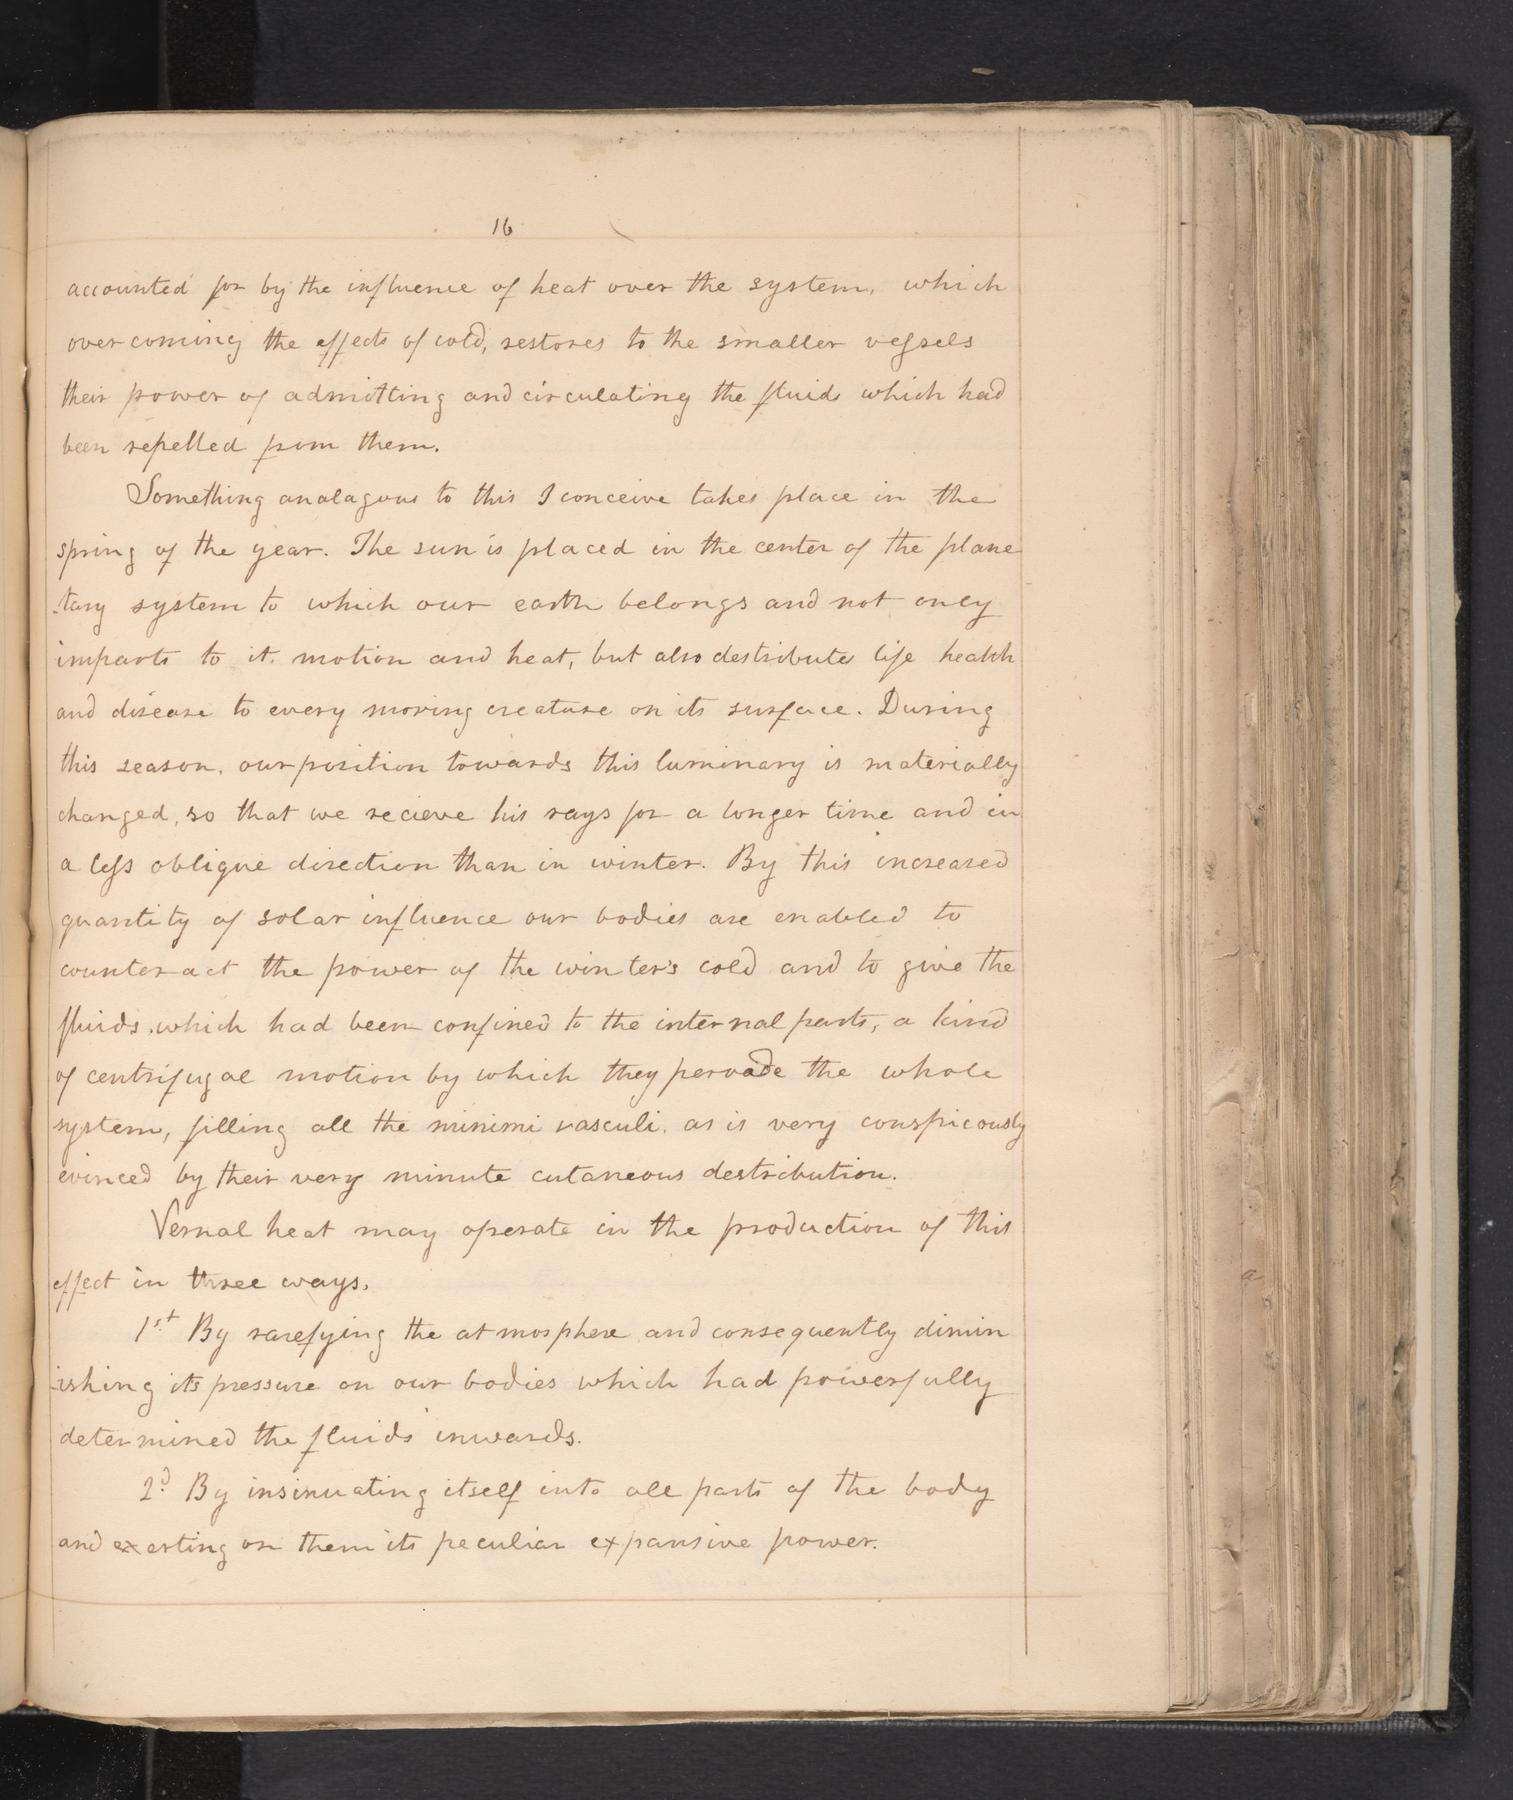 16
accounted for by the influence of heat over the system, which
overcoming the effects of cold, restores to the smaller vessels
their power of admitting and circulating the fluids which had
been repelled from them.
Something analagous to this I conceive takes place in the
spring of the year. The sun is placed in the center of the plane
-tary system to which our earth belongs and not only
imparts to it motion and heat, but also destributes life health
and disease to every moving creature on its surface. During
this season, our position towards this luminary is materially
changed, so that we recieve his rays for a longer time and in
a less oblique direction than in winter. By this increased
quantity of solar influence our bodies are enabled to
counteract the power of the winter's cold and to give the
fluids, which had been confined to the internal parts, a kind
of centrifugal motion by which they pervade the whole
system, filling all the minimi vasculi, as is very conspicously
evinced by their very minute cutaneous destribution.
Vernal heat may operate in the production of this
effect in three ways.
1st By rarefying the atmosphere and consequently dimin
-ishing its pressure on our bodies which had powerfully
determined the fluids inwards.
2d By insinuating itself into all parts of the body
and exerting on them its peculiar expansive power.